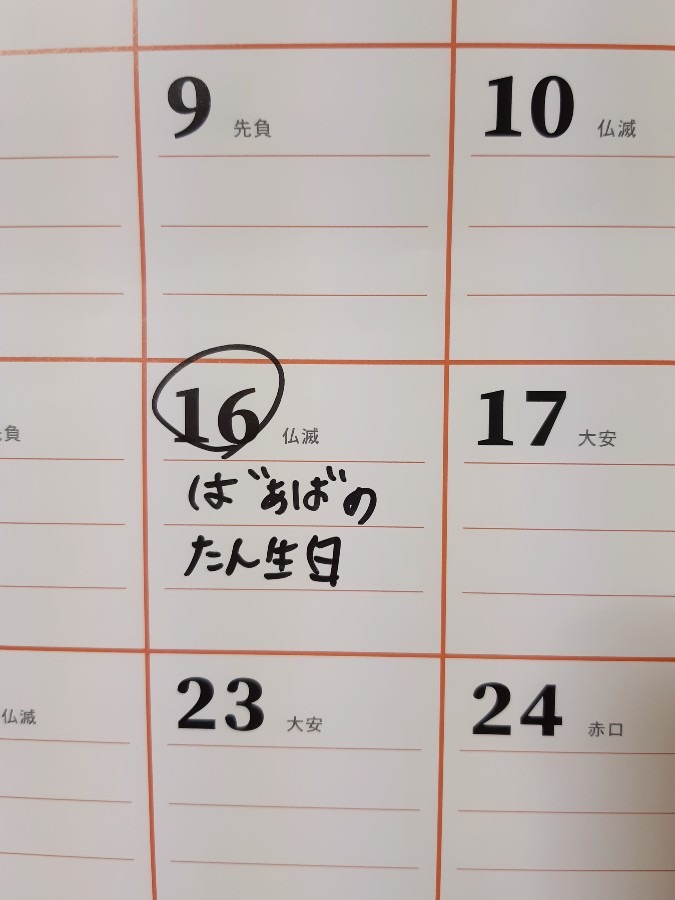 9 先負
10 仏滅
負
16 仏滅
17 大安
ばぁばの
たん生日
仏滅
23 大安
24 赤口